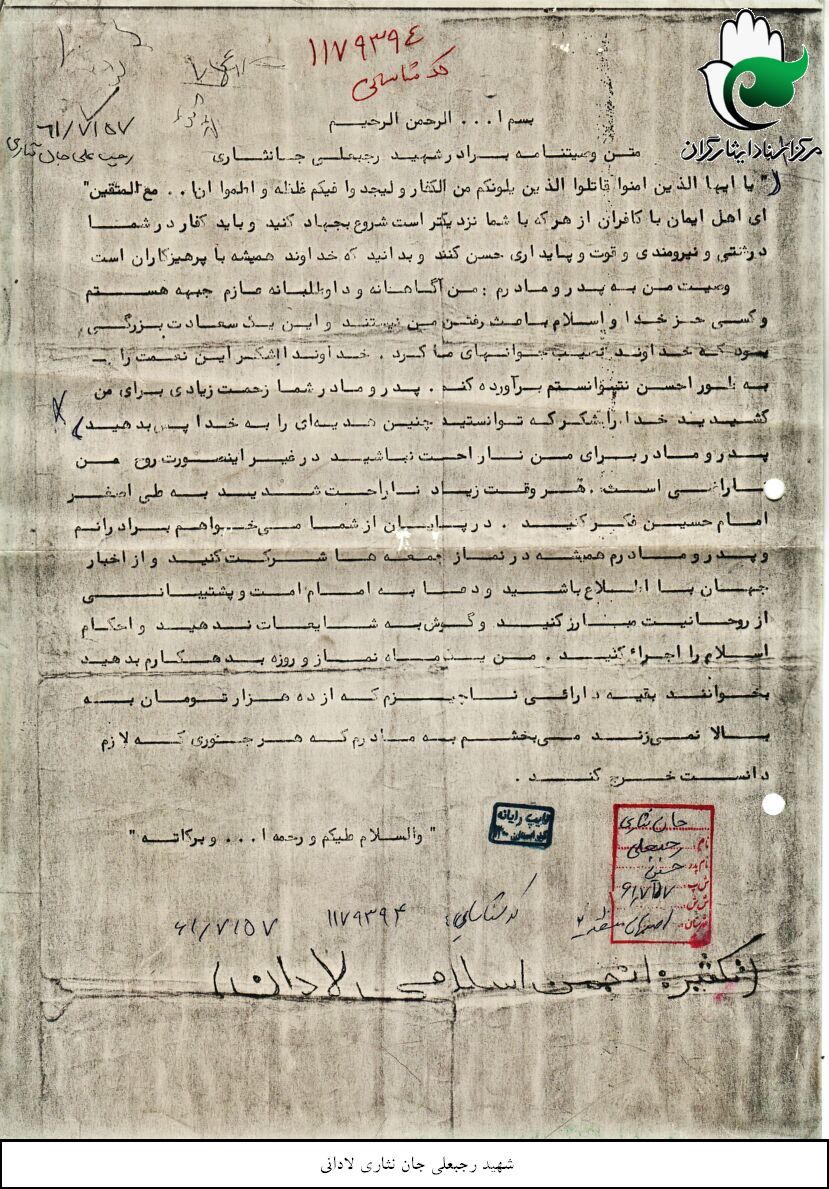 ۱۱۷۹۳۹٤
کد شناسایی
مرکز اسناد ایثارگران
بسم ا... الرحمن الرحیم
۶۱/۷/۵۷
رجبعلی جان نثاری
متن وصیتنامه برادر شهید رجبعلی جانثاری
("یا ایها الذین امنوا قاتلوا الذین یلونکم من الکفار و لیجدوا فیکم غلظه و اعلموا ان ا.. مع المتقین"
ای اهل ایمان با کافران از هرکه با شما نزدیکتر است شروع بجهاد کنید و باید کفار در شما
درشتی و نیرومندی و قوت و پایداری حسن کنند و بدانید که خداوند همیشه با پرهیزکاران است
وصیت من به پدر و مادرم : من آگاهانه و داوطلبانه عازم جبهه هستم
و کسی جز خدا و اسلام باعث رفتن من نیستند و این یک سعادت بزرگی
بود که خداوند نصیب جوانهای ما کرد . خداوندا شکر این نعمت را
به طور احسن نتوانستم برآورده کنم . پدر و مادر شما زحمت زیادی برای من
کشیدید خدا را شکر که توانستید چنین هدیه‌ای را به خدا پس بدهید)
پدر و مادر برای من ناراحت نباشید در غیر اینصورت روح من
ناراضی است . هر وقت زیاد ناراحت شدید به علی اصغر
امام حسین فکر کنید . در پایان از شما می‌خواهم برادرانم
و پدر و مادرم همیشه در نماز جمعه ها شرکت کنید و از اخبار
جهان با اطلاع باشید و دعا به امام امت و پشتیبانی
از روحانیت مبارز کنید و گوش به شایعات ندهید و احکام
اسلام را اجراء کنید . من یک ماه نماز و روزه بدهکارم بدهید
بخوانند بقیه دارائی ناچیزم که از ده هزار تومان به
بالا نمی‌زند می‌بخشم به مادرم که هر جوری که لازم
دانست خرج کند .
"والسلام علیکم و رحمه ا... و برکاته"
تایپ رایانه
جان نثاری
نام رجبعلی
نام پدر حسن
۶۱/۷/۵۷
اصفهان
کد شناسایی: ۱۱۷۹۳۹۴ ۶۱/۷/۵۷
(تکثیر: انجمن اسلامی لادان)
شهید رجبعلی جان نثاری لادانی